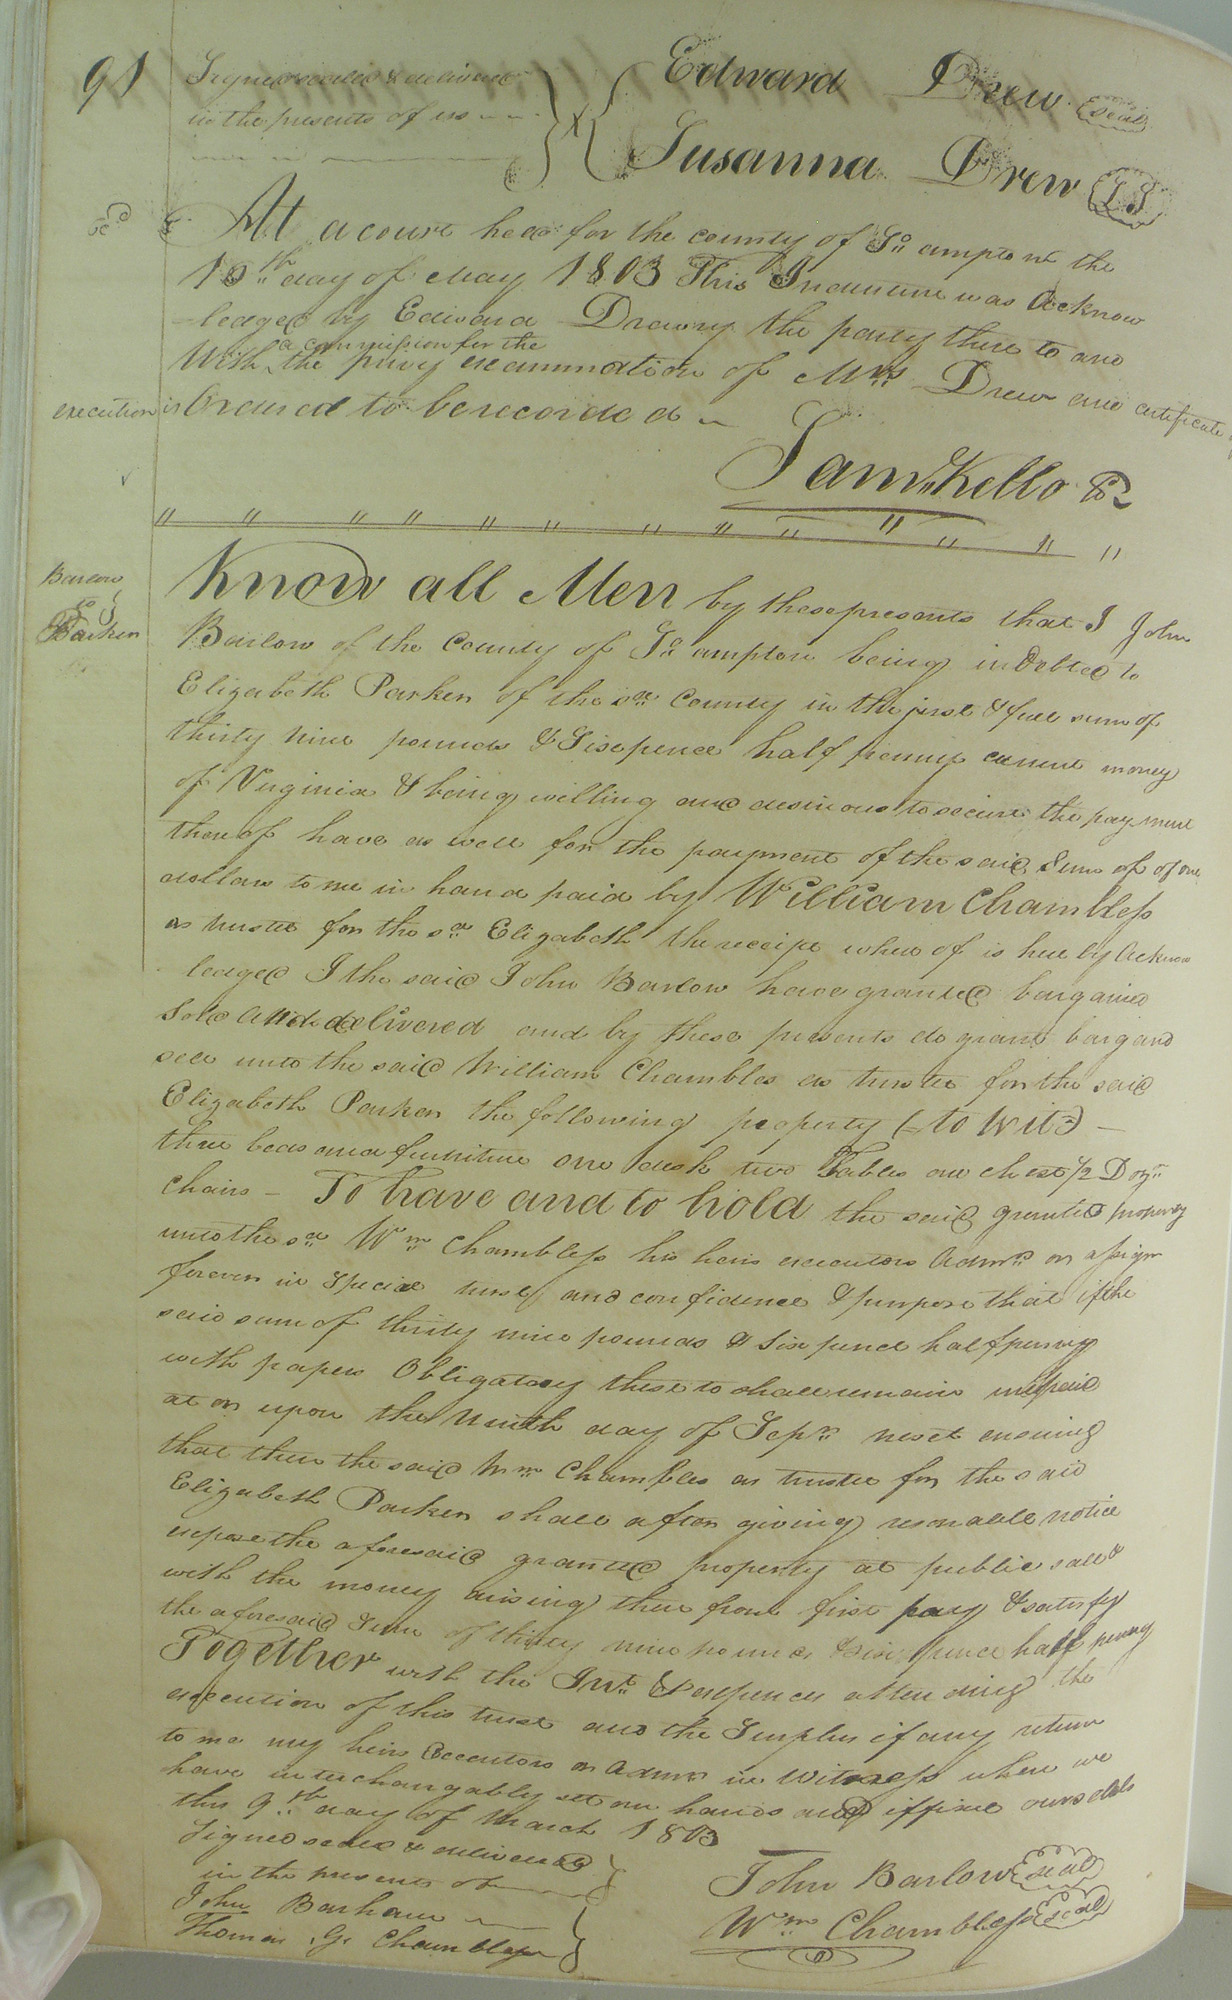 91
Signed sealed & delivered
in the presents of us
Edward Drew seal
Susanna Drew LS
At a court held for the county of So. ampton the
18th day of May 1803 This Indenture was Acknow
ledged by Edward Drewry the party there to and
a commission for the
With the privy examination of Mrs Drew and certificate of
execution is Ordered to be recorded
Saml. Kello Cl
Barlow
&
Parker
Know all Men by these presents that I John
Barlow of the County of So ampton being indebted to
Elizabeth Parker of the sd. County in the just & full sum of
thirty nine pounds & Sixpence half penny current money
of Virginia & being willing and desirous to secure the payment
there of have as well for the payment of the said Sum of of one
dollar to me in hand paid by William Chambless
as trustee for the sd. Elizabeth the receipt where of is here by Acknow
ledged I the said John Barlow have granted bargained
Sold and delivered and by these presents do grant barg and
sell unto the said William Chambles as trustee for the said
Elizabeth Parker the following property (to wit)
three beds and furniture one desk two Tables one chest 1/2 Dozn
Chairs - To have and to hold the said granted property
unto the sd. Wm Chambless his heirs executors Admrs or assigns
forever in special trust and confidence & purpose that if the
said sum of thirty nine pounds & Six pence half penny
with papers Obligatory these to shall remain unpaid
at or upon the Ninth day of Sepr next ensuing
that then the said Wm Chambles as trustee for the said
Elizabeth Parker shall after giving resonable notice
expose the aforesaid granted property at public sale &
with the money arising there from first pay & satisfy
the aforesaid Sum of thirty nine pounds & six pence half penny
Together with the Int. & expences attending the
execution of this trust and the Surplus if any return
to me my heirs Executors or Admrs in Witness where we
have interchangably set our hands and affixed our seals
this 9th day of March 1803
Signed sealed & delivered
in the presents of
John Barham
Thomas G. Chambless
John Barlow seal
Wm Chambless seal